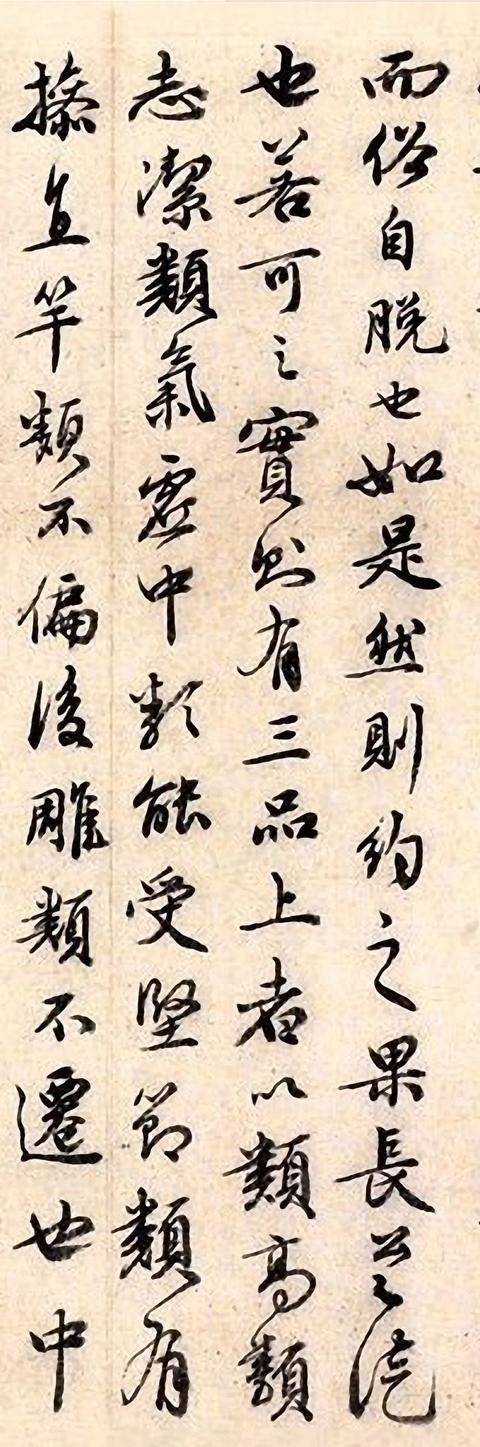 而俗自脱也如是然則約之果長公之流
也若可之實則有三品上者以類高類
志潔類氣虛中類能受堅節類有
操直竿類不偏後雕類不遷也中